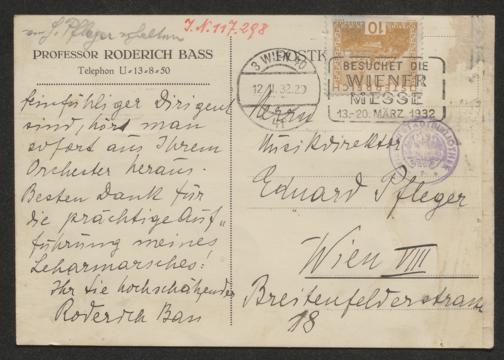 von E. Pfleger erhalten
I.N. 117.298
PROFESSOR RODERICH BASS
Telephon U-13-8-50
einfühliger Dirigent
sind, hört man
sofort aus Ihrem
Orchester heraus.
Besten Dank für
die prächtige Auf-
führung meines
Leharmarsches!
Ihr Sie hochschätzender
Roderich Bass
POSTK
10
3 WIEN 40
12.II.32.20
BESUCHET DIE
WIENER
MESSE
13.-20. MÄRZ 1932
Herrn
Musikdirektor
Eduard Pfleger
Wien VIII
Breitenfelderstrasse
18